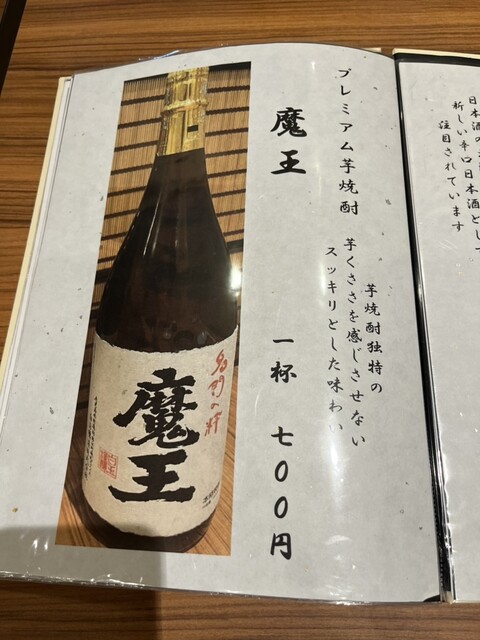 日本酒の
新しい辛口日本酒として
注目されています
プレミアム芋焼酎
芋焼酎独特の
芋くささを感じさせない
スッキリとした味わい
魔王
一杯 七〇〇円
名門の粋
魔王